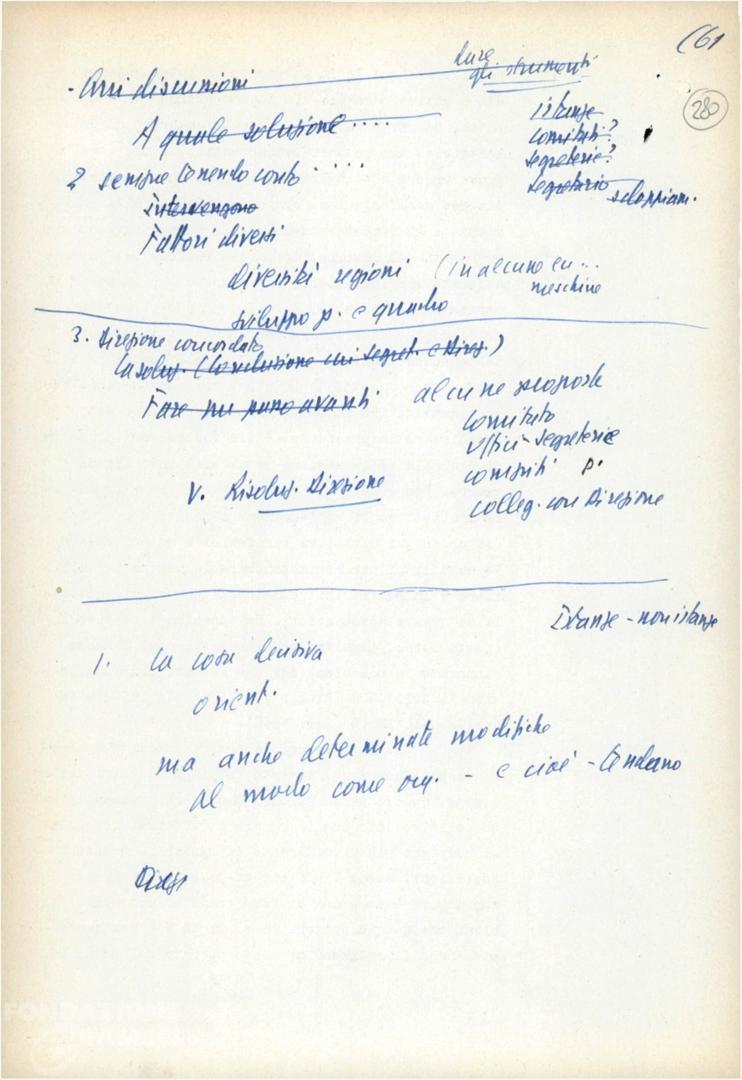 (61
280
- Qui discussioni
dare
gli strumenti
A quale soluzione ....
istanze
comitati?
segreterie?
segretario
2 sempre tenendo conto .....
intervengono
Fattori diversi
diversità regioni (in alcune
meschine
sviluppo p. e quadro
3. Direzione concordato
La soluz. (Conclusione Segret. e Direz.)
Fare un passo avanti
alcune proposte
comitato
uffici - segreterie
compiti p.
colleg. con Direzione
V. Risoluz. Direzione
Istanze - non istanze
1. La cosa decisiva
orient.
ma anche determinate modifiche
al modo come org. - e cioè - tendano
Direz
FONDAZIONE